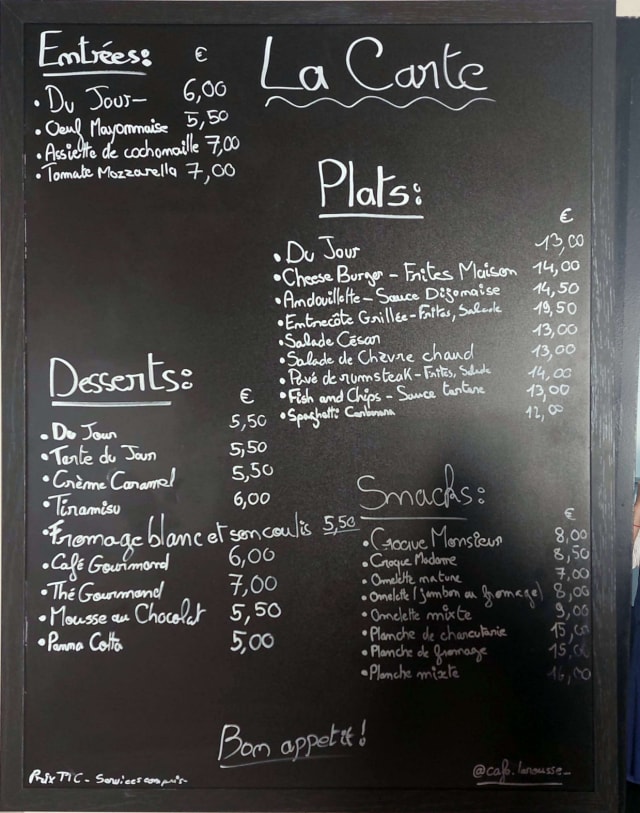 La Carte
Entrées: €
• Du Jour- 6,00
• Oeuf Mayonnaise 5,50
• Assiette de cochonaille 7,00
• Tomate Mozzarella 7,00
Plats:
€
• Du Jour 13,00
• Cheese Burger - Frites Maison 14,00
• Andouillette - Sauce Dijonaise 14,50
• Entrecôte Grillée - Frites, Salade 19,50
• Salade César 13,00
• Salade de Chèvre chaud 13,00
• Pavé de rumsteak - Frites, Salade 14,00
• Fish and Chips - Sauce tartare 13,00
• Spaghetti Carbonara 12,00
Desserts:
€
• Du Jour 5,50
• Tarte du Jour 5,50
• Crème Caramel 5,50
• Tiramisu 6,00
• Fromage blanc et son coulis 5,50
• Café Gourmand 6,00
• Thé Gourmand 7,00
• Mousse au Chocolat 5,50
• Panna Cotta 5,00
Snacks:
€
• Croque Monsieur 8,00
• Croque Madame 8,50
• Omelette nature 7,00
• Omelette (jambon ou fromage) 8,00
• Omelette mixte 9,00
• Planche de charcuterie 15,00
• Planche de fromage 15,00
• Planche mixte 16,00
Bon appetit!
Prix TTC - Services compris-
@cafe.larousse_